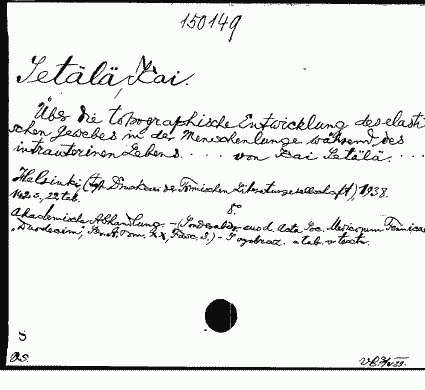 150149
Setälä, Kai.
Über die topographische Entwicklung des elasti-
schen Gewebes in der Menschenlunge während des
intrauterinen Lebens.... von Kai Setälä....
Helsinki, (typ. Druckerei der Finnischen Literaturgesellschaft), 1938.
8°
142 s., 22 tab.
Akademische Abhandlung. – (Sonderabdr. aus d. Acta Soc. Medicorum Fennicae
"Duodecim", Ser. A. Tom. XX, Fasc. 3.) –
S